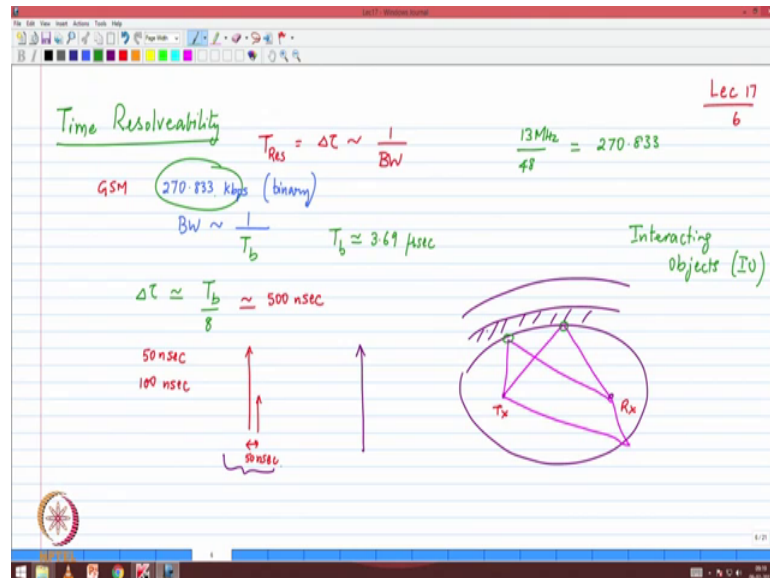 Lec17 - Windows Journal
File Edit View Insert Actions Tools Help
Page Width
B I
Lec 17
6
Time Resolveability
T_Res = Δτ ~ 1/BW
13 MHz / 48 = 270.833
GSM 270.833 kbps (binary)
BW ~ 1/T_b
T_b ≃ 3.69 μsec
Interacting
Objects (IO)
Δτ ≃ T_b/8 ≃ 500 nsec
50 nsec
100 nsec
50 nsec
Tx
Rx
NPTEL
6